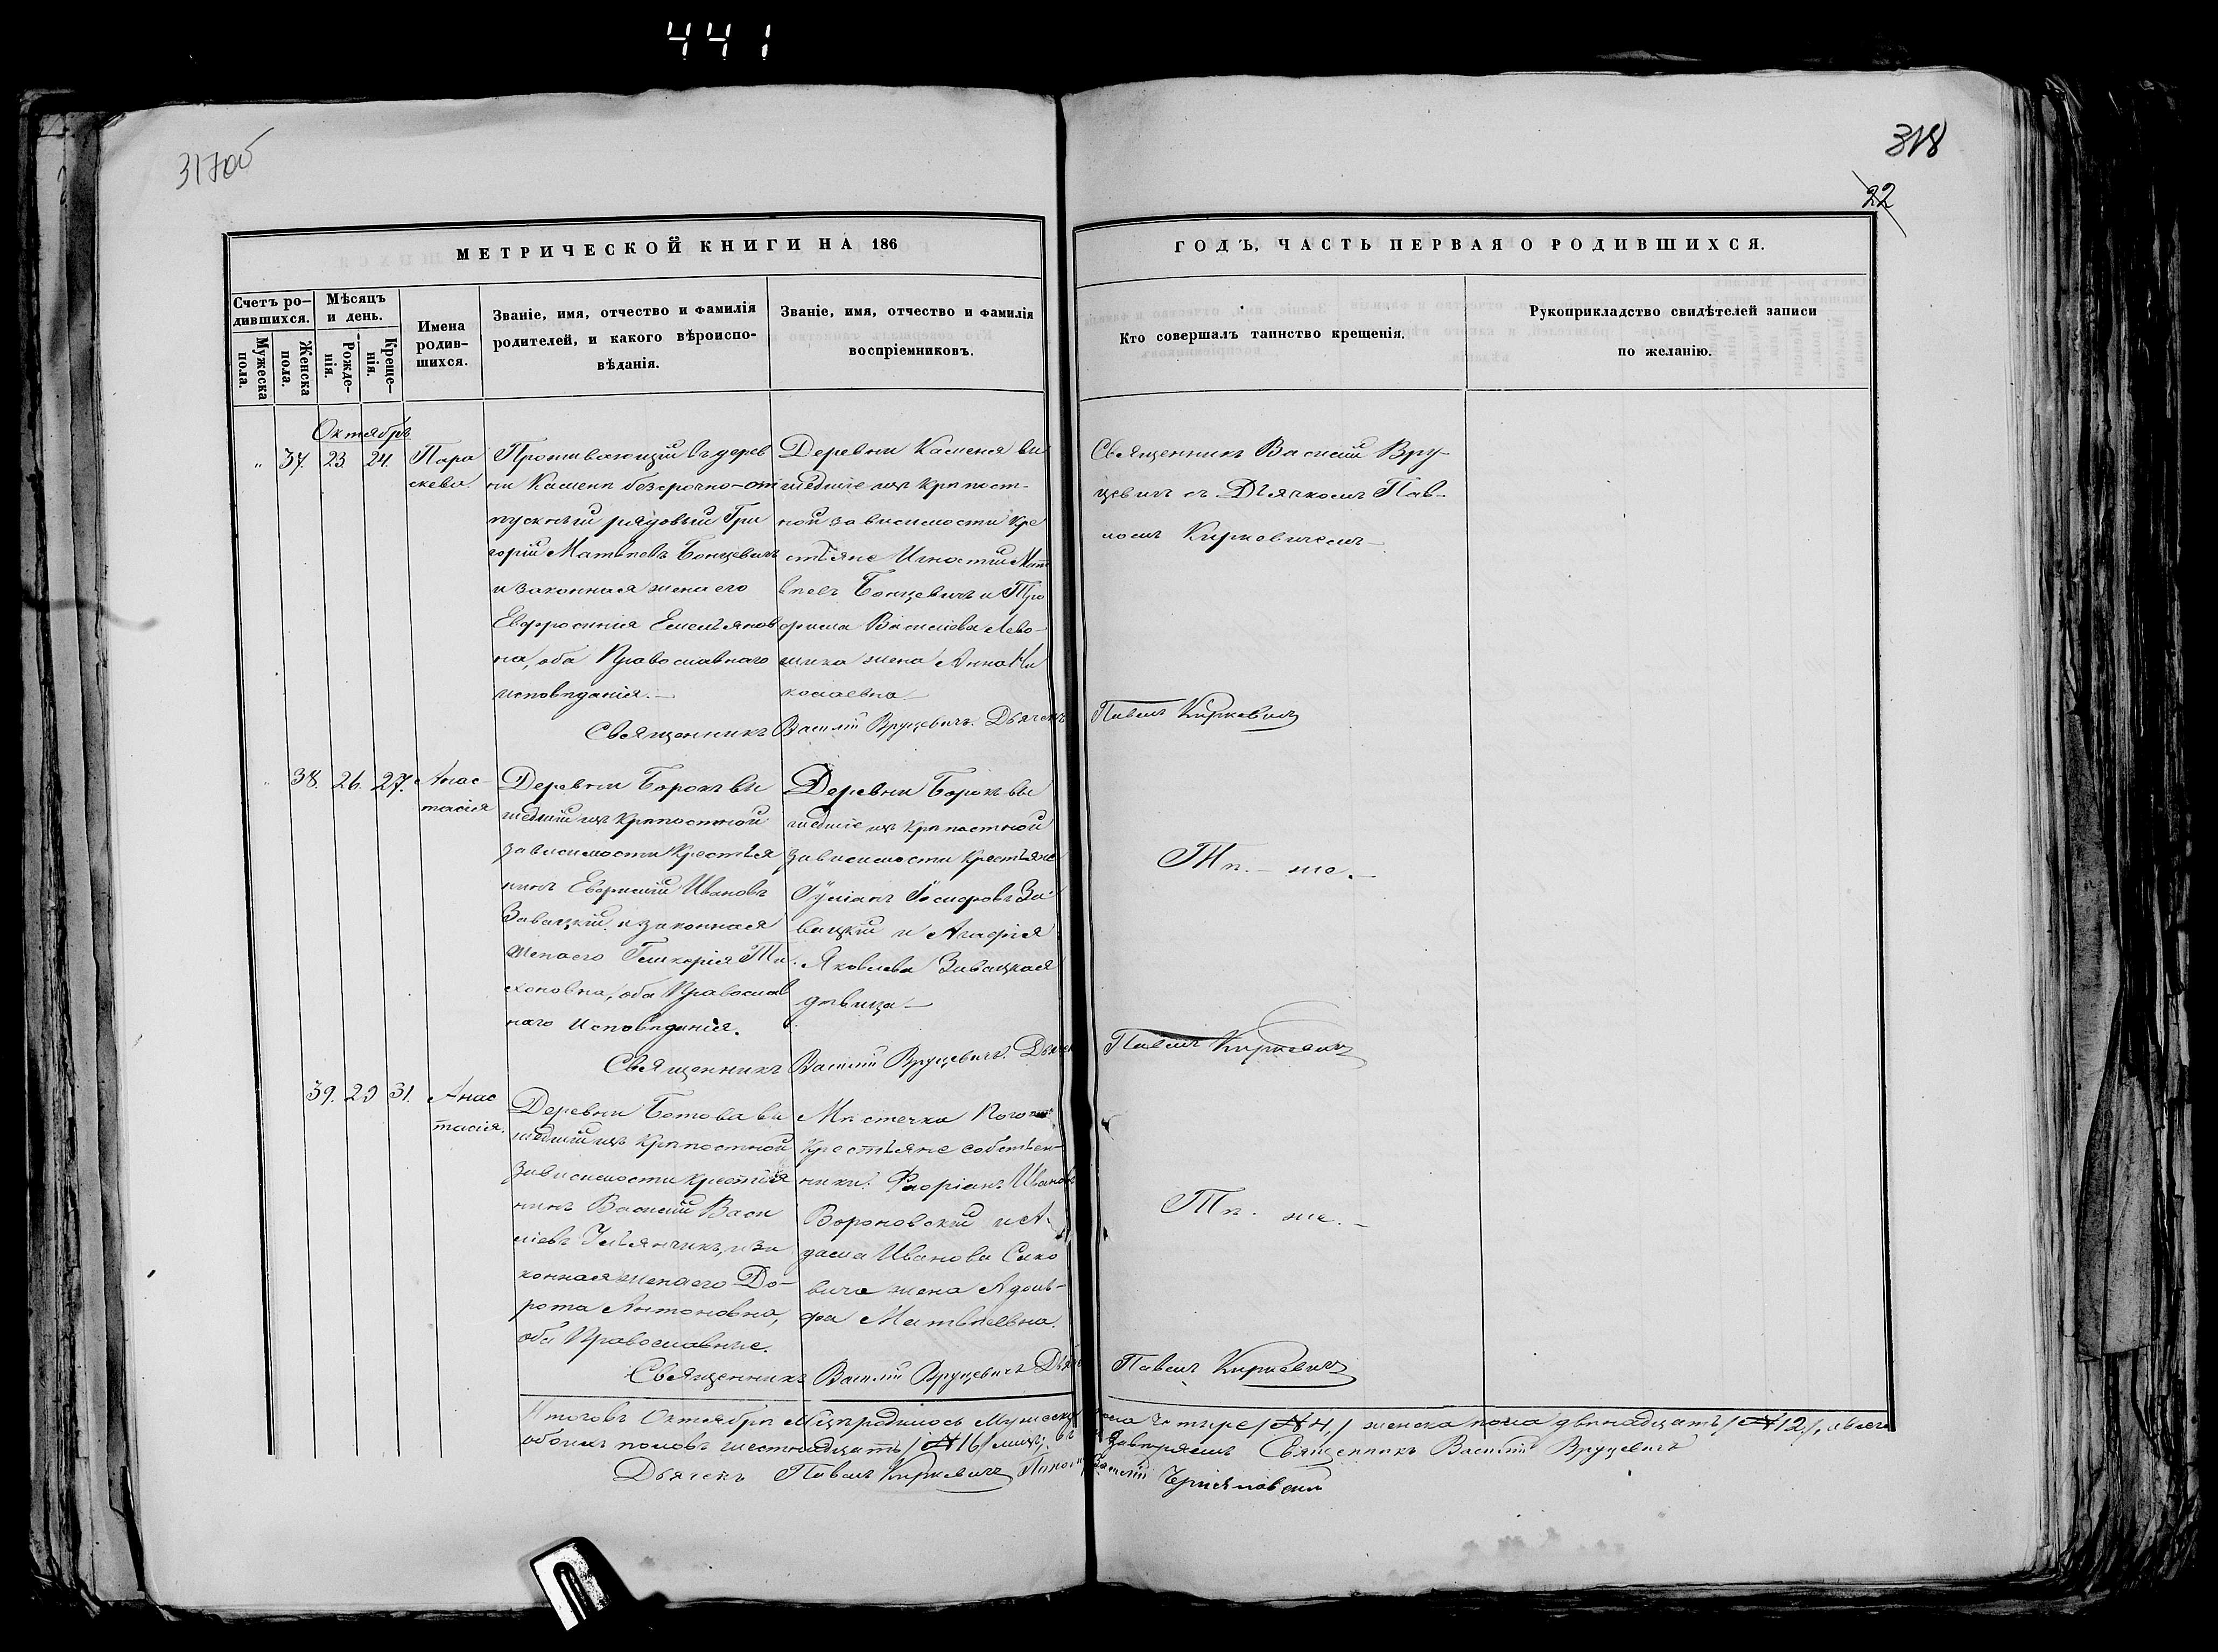 441
317об
318
22
МЕТРИЧЕСКОЙ КНИГИ НА 186
ГОДЪ, ЧАСТЬ ПЕРВАЯ О РОДИВШИХСЯ.
Счетъ ро-
дившихся.
Мужеска
пола.
Женска
пола.
Мѣсяцъ
и день.
Рожде-
нія.
Креще-
нія.
Имена
родив-
шихся.
Званіе, имя, отчество и фамилія
родителей, и какого вѣроиспо-
вѣданія.
Званіе, имя, отчество и фамилія
воспріемниковъ.
Кто совершалъ таинство крещенія.
Рукоприкладство свидѣтелей записи
по желанію.
Октябрь
" 37. 23. 24.
Пара
скева.
Проживающій въ дерев
ни Каменя безсрочно-от
пускный рядовый Гри
горій Матвѣевъ Бонцевичъ
и законная жена его
Евфросинія Емельянов
на, оба Православнаго
исповѣданія.
Деревни Каменя вы
шедшіе изъ крѣпост-
ной зависимости кре
стьяне Игнатій Мат
вѣевъ Бонцевичъ и
Василіева Лево-
жена Анна Ни
колаевна
Священникъ Василій Вруцевичъ
съ Дьячкомъ Пав-
ломъ Киркевичемъ
Священникъ Василій Вруцевичъ. Дьячекъ Павелъ Киркевичъ
" 38. 26. 27.
Анас
тасія
Деревни Борокъ вы
шедшій изъ крѣпостной
зависимости крестья
нинъ Иванов
Завацкій, и законная
жена его Гликерія Ти
хоновна, оба Православ
наго исповѣданія.
Деревни Борокъ вы
шедшіе изъ крѣпостной
зависимости крестьяне
Іуліанъ Іосифовъ За
вацкій и Агафія
Яковлева Завацкая
дѣвица
Тѣ-же.
Священникъ Василій Вруцевичъ. Дьячек Павелъ Киркевичъ
39. 29 31.
Анас
тасія.
Деревни Ботова вы
шедшій изъ крѣпостной
зависимости крестья
нинъ Василій Васи
ліевъ и за
конная жена его До-
рота Антоновна,
оба Православные.
Мѣстечка
крестьяне собствен-
ники: Флоріанъ Иванов
Вороновскій и А-
дама Иванова Сако
вича жена Адоль-
фа Матвѣевна.
Тѣ. же.
Священникъ Василій Вруцевичъ Дьяче Павелъ Киркевичъ
Итого въ Октябрѣ М-цѣ родилось Мужеска пола четыре /№ 4,/ женска пола двѣнадцать /№ 12/, а всего
обоихъ половъ шестнадцать /№ 16/ лицъ; въ завѣряемъ Священникъ Василій Вруцевичъ
Дьячекъ Павелъ Киркевичъ Поном.